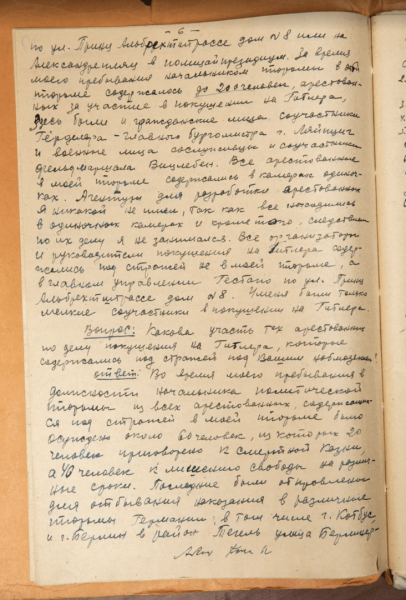 - 6 -
по ул. Принц Альбрехтштрассе дом №8 или на
Александерплац в полицайпрезидиум. За время
моего пребывания начальником тюрьмы в ней
тюрьме содержалось до 200 человек, арестован-
ных за участие в покушении на Гитлера,
Здесь были и гражданские лица соучастники
Герделера - главного бургомистра г. Лейпциг
и военные лица сослуживцы и соучастники
фельдмаршала Вицлебен. Все арестованные
в моей тюрьме содержались в камерах одиноч-
ках. Агентуры для разработки арестованных
я никакой не имел, так как все находились
в одиночных камерах и кроме того, следствием
по их делу я не занимался. Все организаторы
и руководители покушения на Гитлера содер-
жались под стражей не в моей тюрьме, а
в главном управлении Гестапо по ул. Принц
Альбрехтштрассе дом №8. У меня были только
мелкие соучастники в покушении на Гитлера.
Вопрос: Какова участь тех арестованных
по делу покушения на Гитлера, которые
содержались под стражей под Вашим наблюдением?
Ответ: Во время моего пребывания в
должности начальника политической
тюрьмы из всех арестованных, содержавших-
ся под стражей в моей тюрьме было
осуждено около 60 человек, из которых 20
человек приговорено к смертной казни,
а 40 человек к лишению свободы на различ-
ные сроки. Последние были отправлены
для отбывания наказания в различные
тюрьмы Германии, в том числе г. Котбус,
и г. Берлин в район Тегель улица Берлинер-